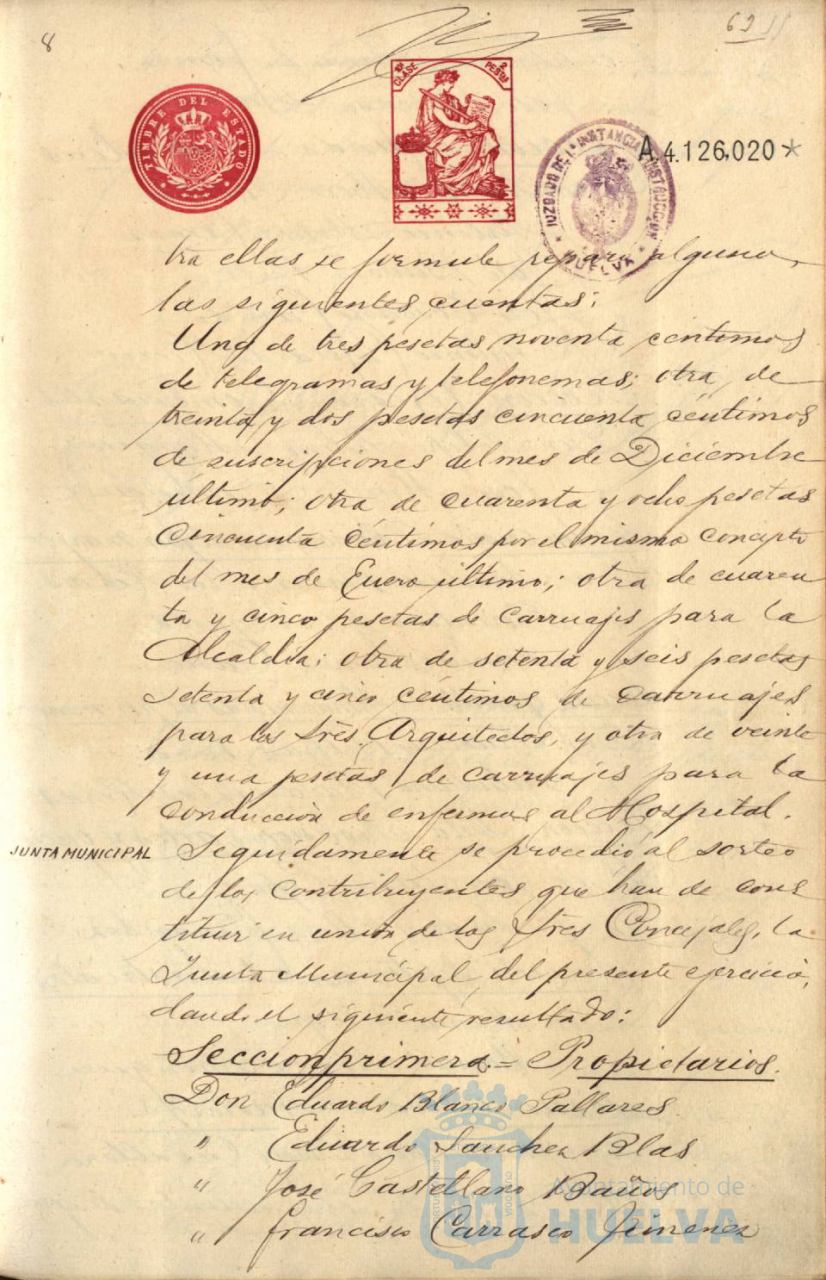 8
62
TIMBRE DEL ESTADO
10ª CLASE 2 PESTAS
JUZGADO DE 1ª INSTANCIA E INSTRUCCION
HUELVA
A.4.126,020*
tra ellas se formule reparo alguno,
las siguientes cuentas:
Una de tres pesetas noventa céntimos
de telegramas y telefonemas; otra, de
treinta y dos pesetas cincuenta céntimos
de suscripciones del mes de Diciembre
último; otra de cuarenta y ocho pesetas
cincuenta céntimos por el mismo concepto
del mes de Enero último; otra de cuaren
ta y cinco pesetas de carruajes para la
Alcaldia; otra de setenta y seis pesetas
setenta y cinco céntimos de carruajes
para los Sres. Arquitectos, y otra de veinte
y una pesetas de carruajes para la
conducción de enfermos al Hospital.
JUNTA MUNICIPAL
Seguidamente se procedió al sorteo
de los contribuyentes que han de cons
tituir en unión de los Sres Concejales, la
Junta Municipal del presente ejercicio,
dando el siguiente resultado:
Seccion primera.= Propietarios.
Don Eduardo Blanco Pallares
" Eduardo Sanchez Blas
" José Castellano Baños
" Francisco Carrasco Jimenez
Ayuntamiento de
HUELVA